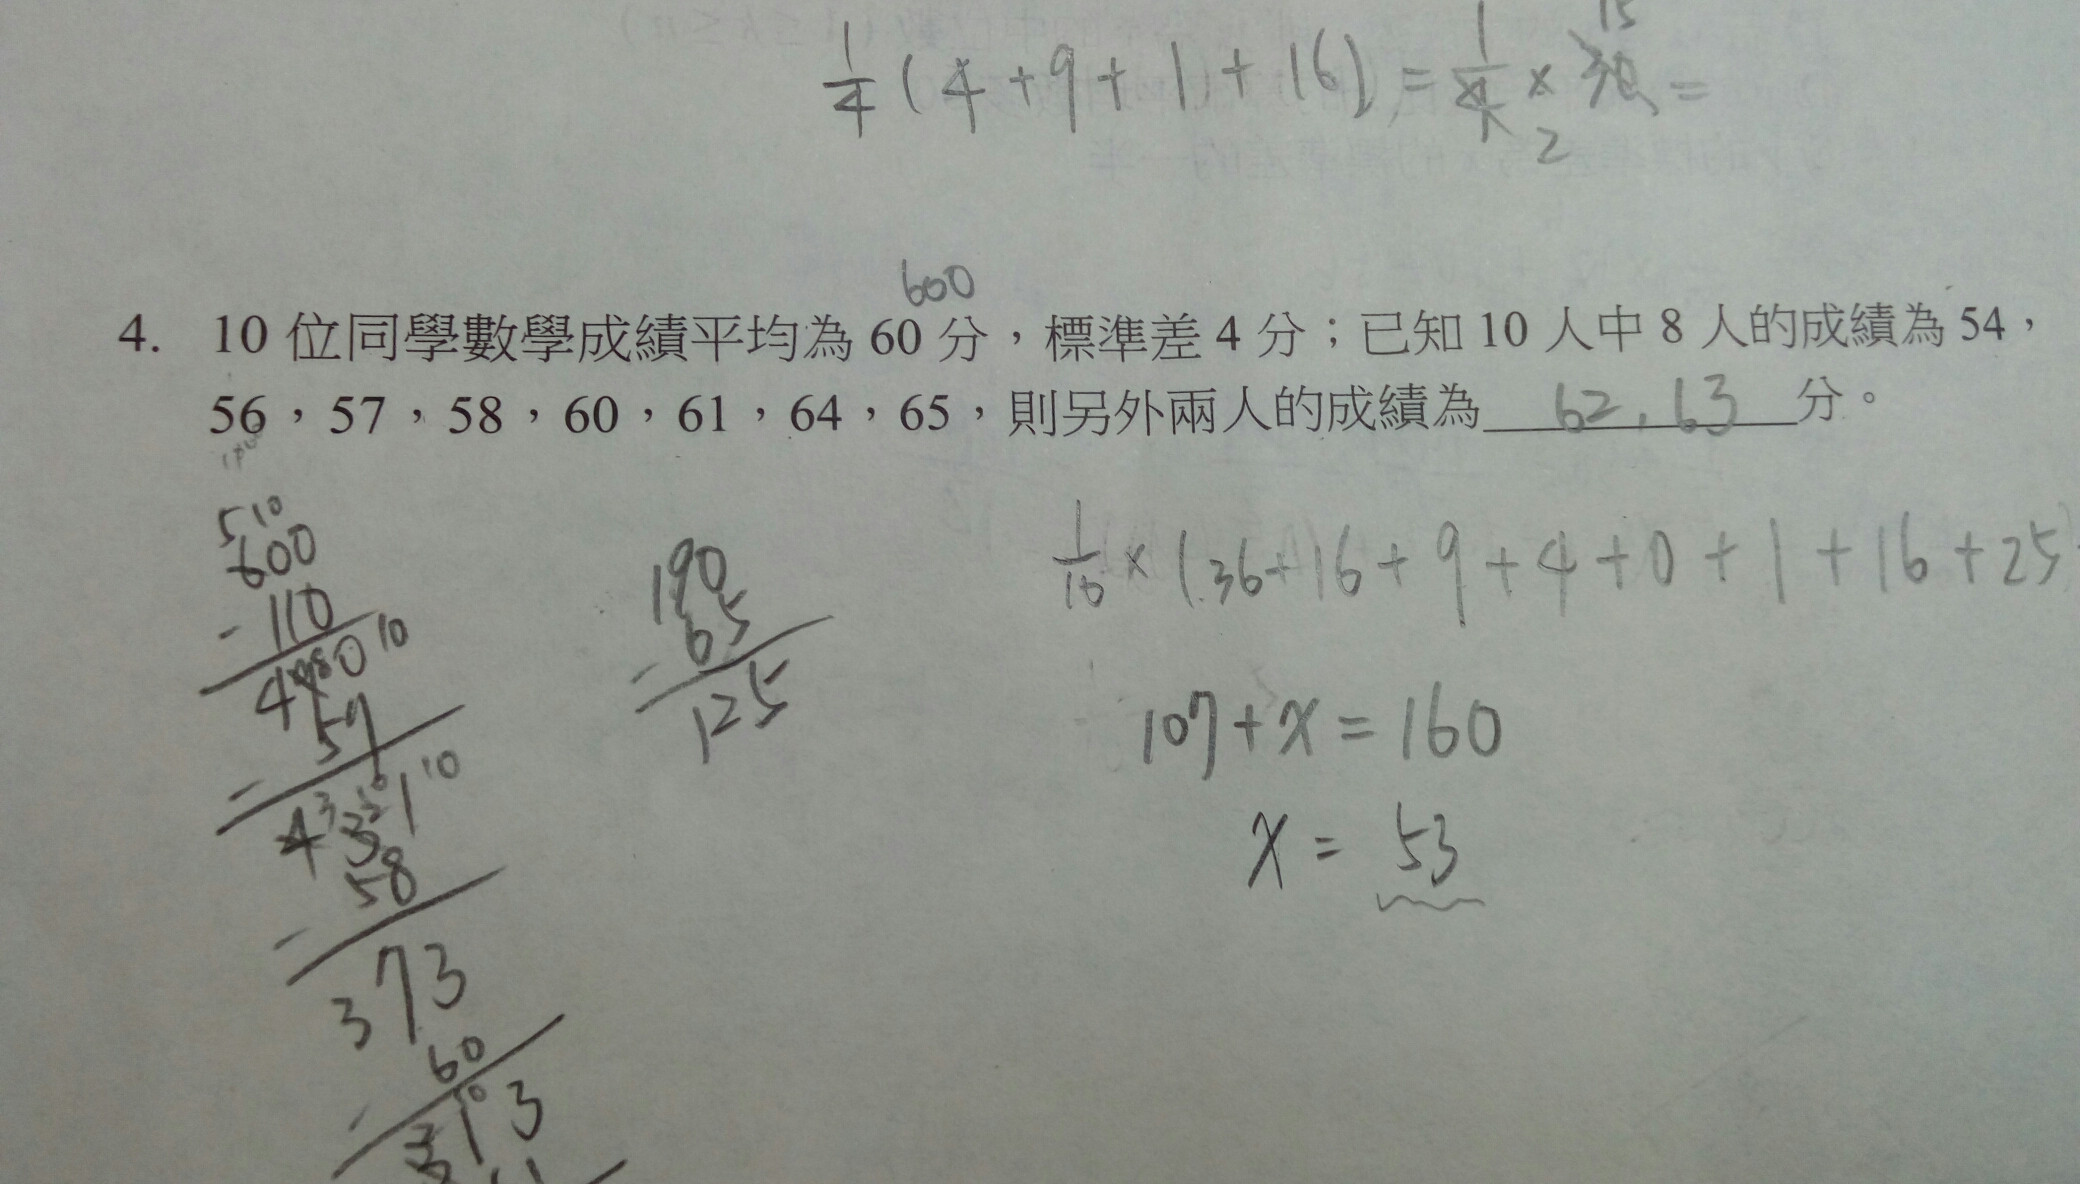 1/4 (4+9+1+16) = 1/4 × 30 =
15
2
600
4. 10 位同學數學成績平均為 60 分，標準差 4 分；已知 10 人中 8 人的成績為 54，
56，57，58，60，61，64，65，則另外兩人的成績為 62, 63 分。
5 10
600
- 110
490 10
57
- 433 10
58
- 373
60
- 313
190
65
- 125
1/10 × (36+16+9+4+0+1+16+25
107+x=160
x = 53